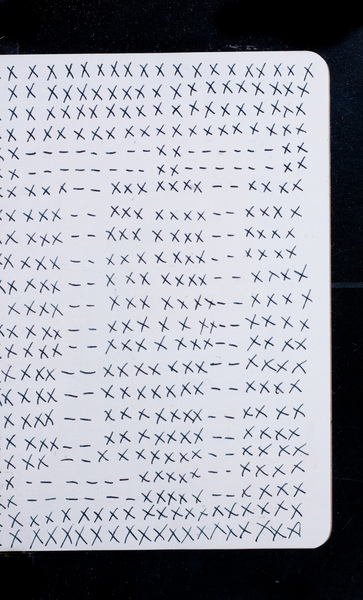 X X X X X X X X X X X X X X X X X X X
X X X X X X X X X X X X X X X X X X X X
X X X X X X X X X X X X X X X X X X X
X X X X X X X X X X X X X X X X X X X
X - - - - - - - - X X - - - - - - X X
X - - - - - - - - X X - - - - - - X X
X X X X - - X X X X X X X - - X X X X
X X X X - - X X X X X X X - - X X X X
X X X X - - X X X X X X X - - X X X X
X X X X - - X X X X X X X - - X X X X
X X X X - - X X X X X X - - X X X X
X X X X - - X X X X X X X - - X X X X
X X X X - - X X X X X X X - - X X X X
X X X X - - X X X X X X X - - X X X X
X X X X - - X X X X X X X - - X X X X
X X X X - - X X X X X X X - - X X X X
X X X X - - X X X X X X X - - X X X X
X X X X - - X X X X X X X - - X X X X
X X X X - - X X X X X X X - - X X X X
X X X - - X X X X X X X - - X X X X
X - - - - - X X X X X - - X X X X
X - - - - - X X X X - - X X X X
X X X X X X X X X X X X X X X X X X X
X X X X X X X X X X X X X X X X X X X